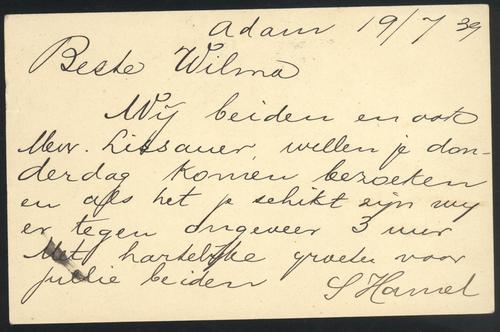 Adam 19/7 39
Beste Wilma
Wij beiden en ook
Mevr. Lissauer, wellen je don-
derdag komen bezoeken
en als het je schikt zijn wij
er tegen ongeveer 3 uur
Met hartelijke groeten voor
jullie beiden S Hamel